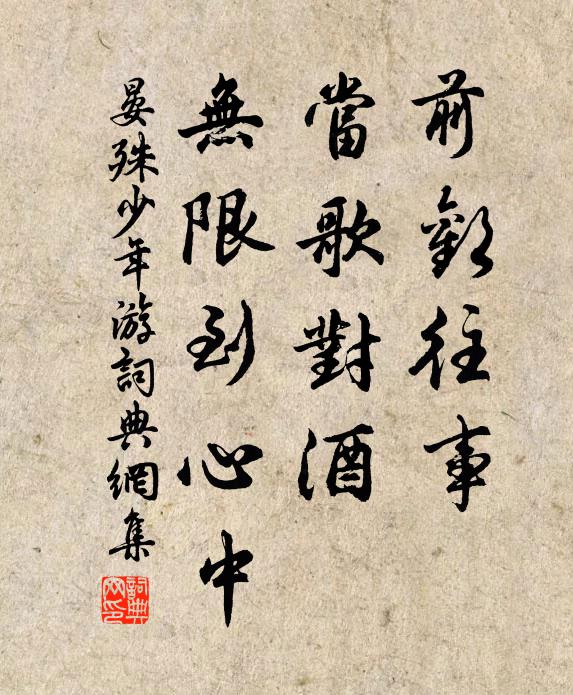 前歡往事
當歌對酒
無限到心中
晏殊少年游詞典網集
詞典
网印